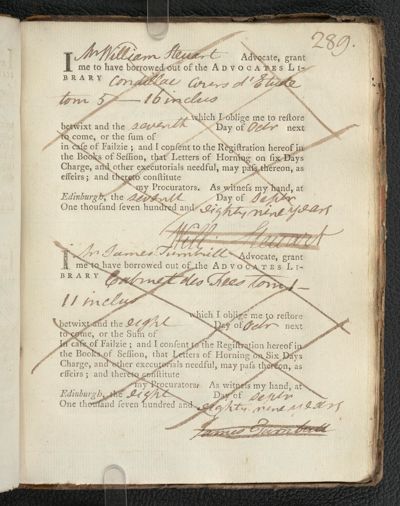 289.
I Mr William Steuart Advocate, grant
me to have borrowed out of the ADVOCATES LI-
BRARY Condillac Cours d'Etude
tom 5 — 16 inclus
which I oblige me to restore
betwixt and the seventh Day of Octr next
to come, or the sum of
in case of Failzie; and I consent to the Registration hereof in
the Books of Session, that Letters of Horning on six Days
Charge, and other executorials needful, may pass thereon, as
effeirs; and thereto constitute
my Procurators. As witness my hand, at
Edinburgh, the seventh Day of Septr
One thousand seven hundred and eighty nine years
Will. Steuart
I Mr James Turnbull Advocate, grant
me to have borrowed out of the ADVOCATES LI-
BRARY Cabinet des Fees tom 1
11 inclus
which I oblige me to restore
betwixt and the eight Day of Octr next
to come, or the Sum of
in case of Failzie; and I consent to the Registration hereof in
the Books of Session, that Letters of Horning on Six Days
Charge, and other executorials needful, may pass thereon, as
effeirs; and thereto constitute
my Procurators. As witness my hand, at
Edinburgh, the eight Day of Septr
One thousand seven hundred and eighty nine years
James Turnbull